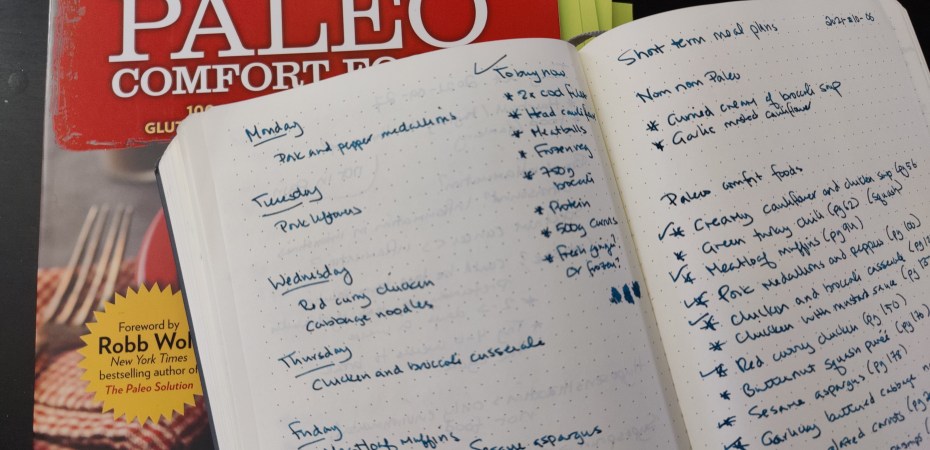 PALEO
COMFORT FO
100
GLUT
Foreword by
Robb Wol
New York Times
bestselling author of
The Paleo Solution
Monday
Pork and pepper medallions
Tuesday
Pork leftovers
Wednesday
Red curry chicken
Cabbage noodles
Thursday
Chicken and broccoli casserole
Friday
Meatloaf muffins
Sesame asparagus
To buy now
* 2x cod fillets
* Head caulifl
* Meatballs
* Frozen veg
* 750g
broccoli
* Protein
* 500g carrots
* Fresh ginger?
Or frozen?
Short term meal plans
Nom nom Paleo
* Curried cream of broccoli soup
* Garlic roasted cauliflower
Paleo comfort foods
* Creamy cauliflower and chicken soup (pg 56
* Green turkey chili (pg 62) (squash)
* Meatloaf muffins (pg 94)
* Pork medallions and peppers (pg 100)
* Chicken and broccoli casserole (pg
* Chicken with mustard sauce (pg
* Red curry chicken (pg 150)
* Butternut squash puree (pg 176)
* Sesame asparagus (pg 178)
* Garlicky buttered cabbage
carrots (pg